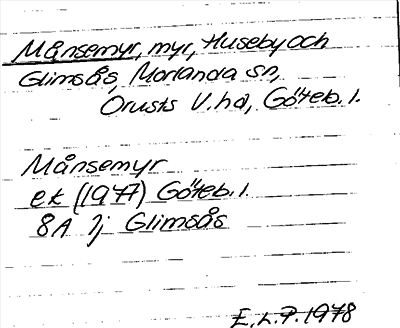 Månsemyr, myr, Huseby och
Glimsås, Morlanda sn,
Orusts V. hd, Göteb. l.
Månsemyr
ek (1977) Göteb. l.
8A 1j Glimsås
E.L.P. 1978